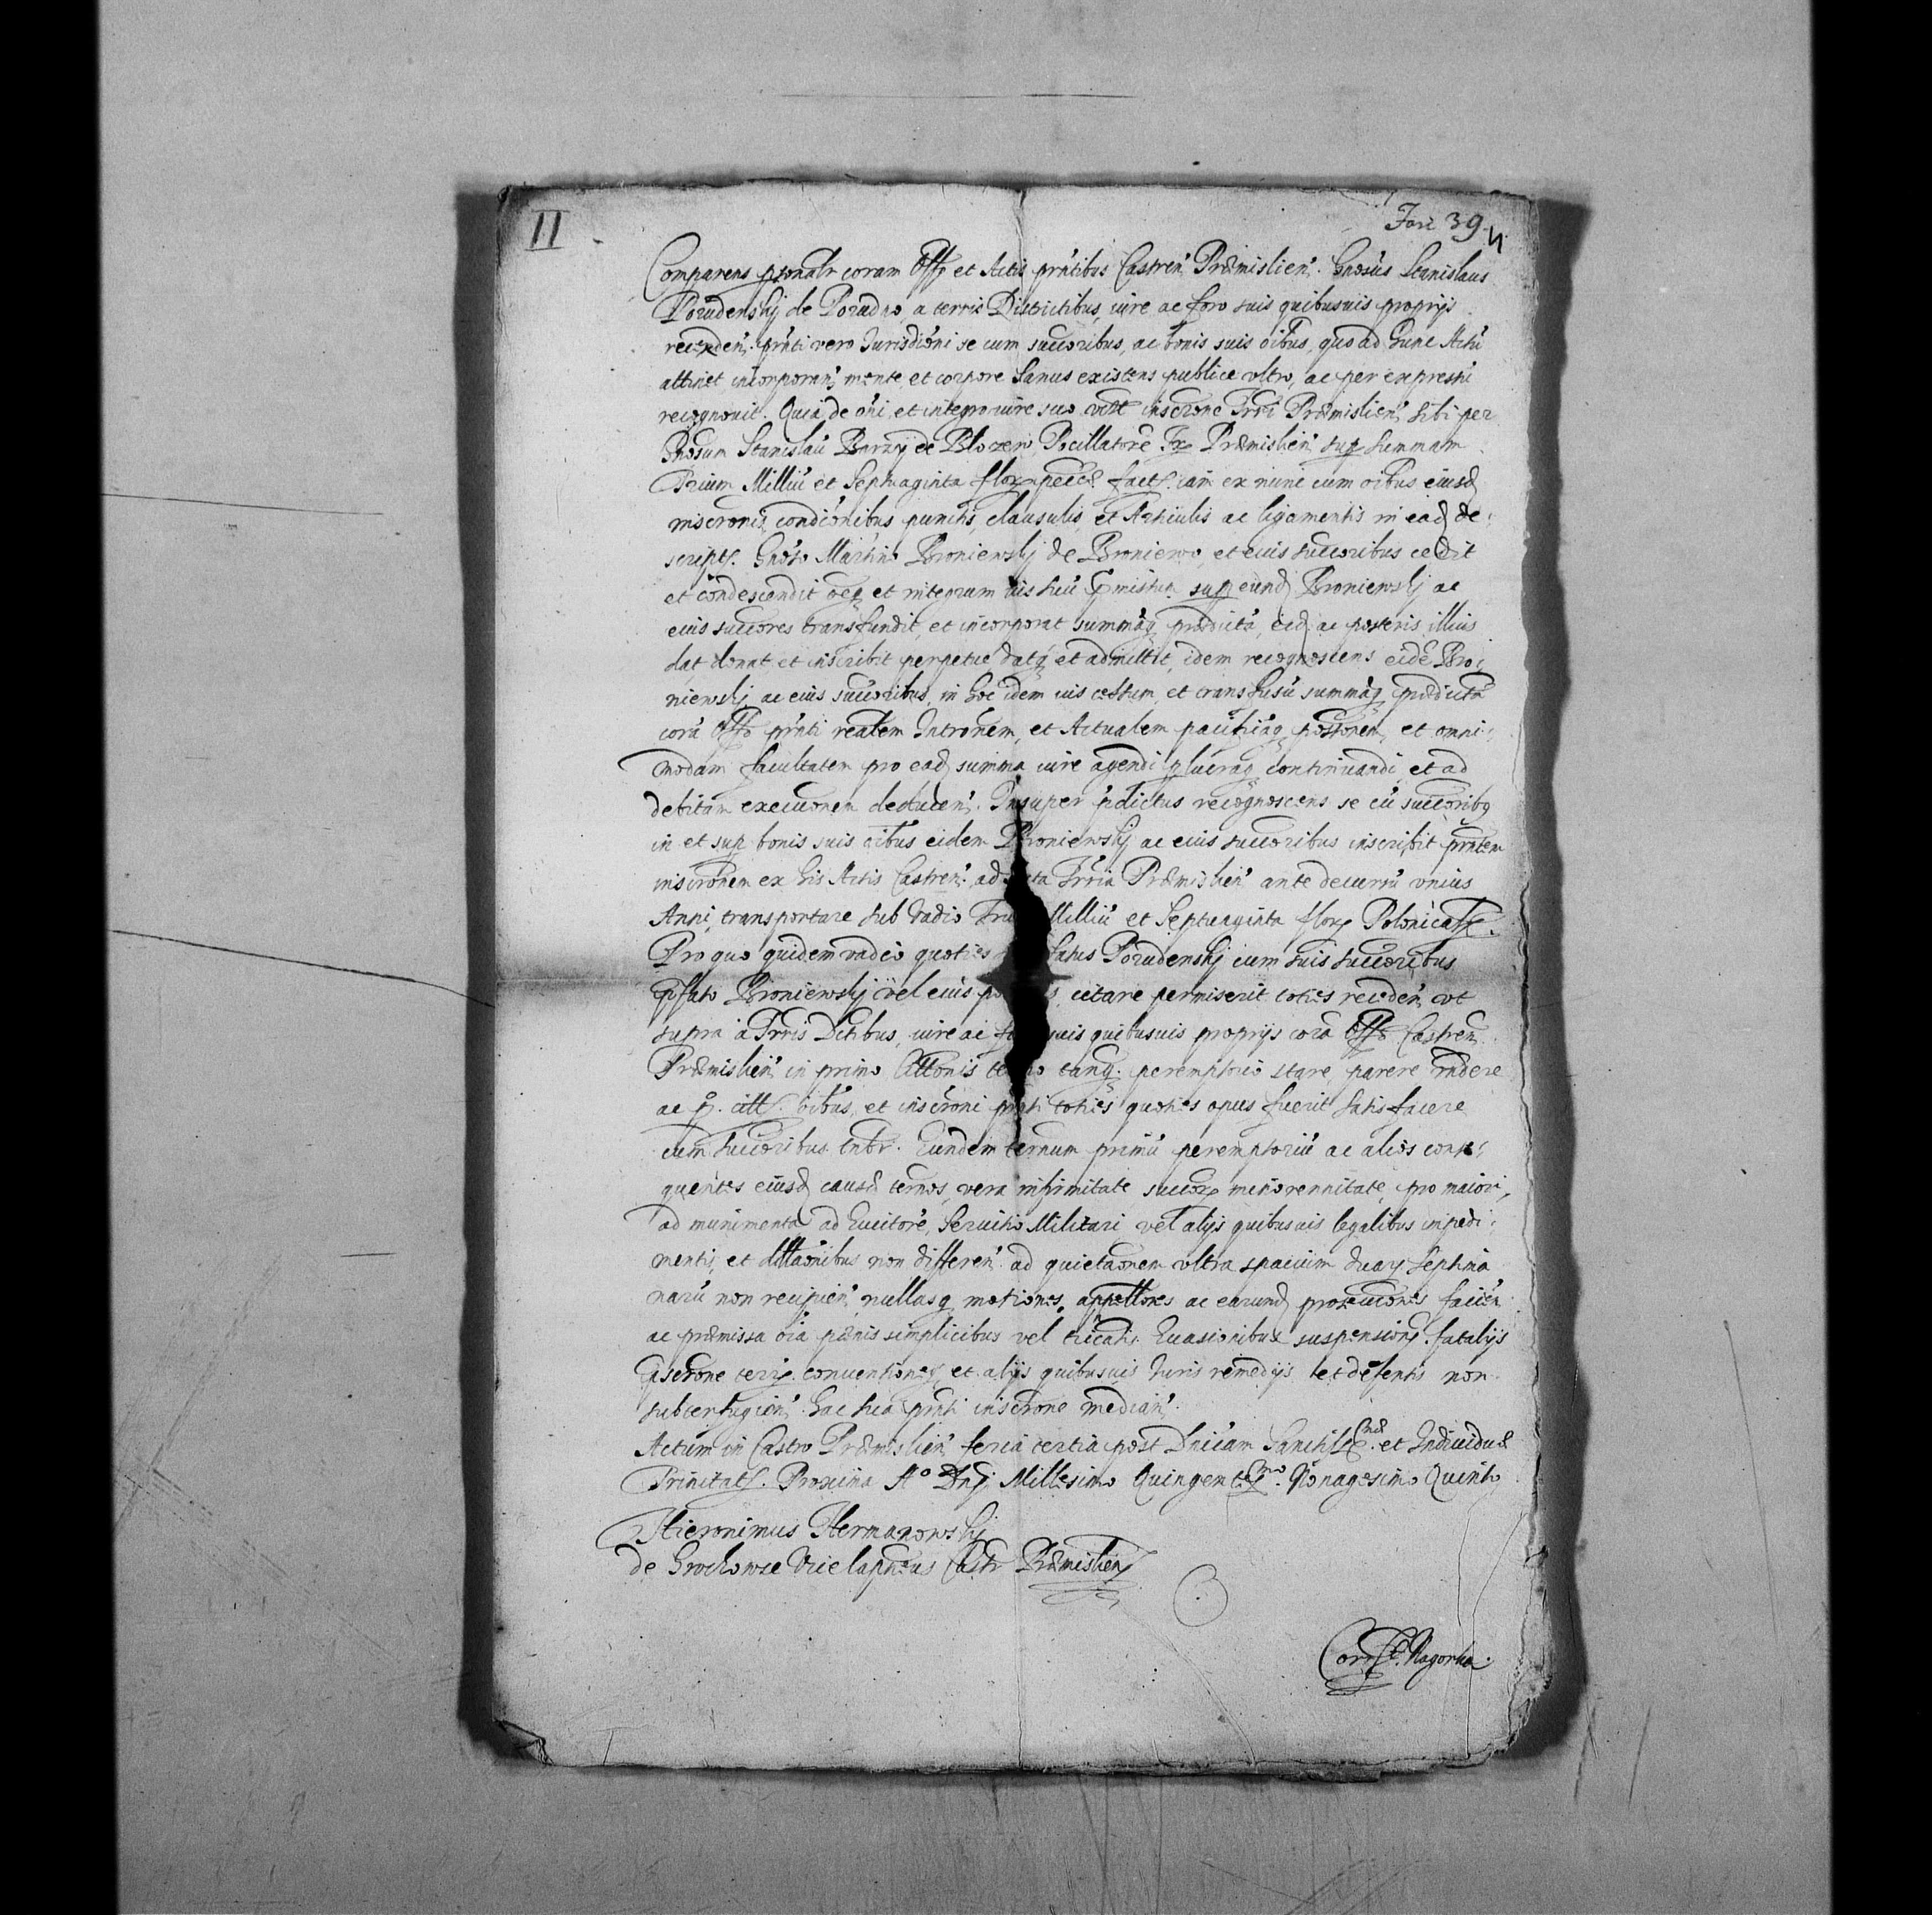 II
Fasc 39 4
Comparens psonalr coram Offo et Actis pntibus Castren Præmislien. Gnosus Stanislaus
Porudenskj de Porudno, a terris Districtibus, iure ac foro suis quibusuis proprijs
receden. pnti vero Jurisdioni se cum succoribus, ac bonis suis oibus, quo ad hunc Actu
attinet incorporan, mente et corpore sanus existens publice vltro, ac per expressu
recognouit. Quia de oni et integro iure suo inscrone Præmislien, sibi per
Gnosum Stanislau Barzy de Blozew, Pocillatore Præmislien sup summam
Trium Milliu et Septuaginta flor pecc. fact. iam ex nunc cum oibus eiusd
inscronis, condionibus punctis, clausulis, et Articulis ac ligamentis in ead de:
script. Gnoso Martino Broniewskj de Broniewo, et eius succoribus cedit
et condescendit oeq et integrum ius suu pmissu sup eund Broniewskj ac
eius succores transfundit, et incorporat summaq prædicta, eid ac posteris illius
dat donat et inscribit perpetue datq et admittit, idem recognoscens eide Bro:
niewskj ac eius succoribus, in hoc idem ius cessum, et transfusu summaq prædicta
cora Offo pnti realem Intronem, et Actualem pacificaq possonem, et omni:
modam facultatem pro ead summa iure agendi lucraq continuandi et ad
debitam execuonem deducen. Insuper pdictus recognoscens se cu succoribq
in et sup bonis suis oibus eidem Broniewskj ac eius succoribus inscribit pntem
inscronem ex his Actis Castren. ad Acta Trria Præmislien ante decursu vnius
Anni, transportare sub vadio Milliu et Septuaginta flor Polonical.
Pro quo quidem vadio quoties Porudenskj cum suis succoribus
pfato Broniewskj vel eius citare permiserit toties receden, vt
supra a Trris Dctibus, iure ac suis quibusuis proprijs cora Offo Castren.
Præmislien, in primo Cittonis tanq. peremptorio stare, parere rndere
ac citt. oibus, et inscroni pnti toties quoties opus fuerit satisfacere
cum succoribus tnbr. Eundem ternum primu peremptoriu ac alios conse:
quentes eiusd causæ ternos, vera infirmitate succor minorennitate, pro maiori,
ad munimenta ad Euictore, Seruitio Militari vel alijs quibusuis legalibus impedi:
mentis, et dillaonibus non differen. ad quietaonem vltra spacium duar septima
naru non recipien, nullasq motiones, appellones ac earund prosecuones facien
ac præmissa oia pænis simplicibus vel Euasionibus suspension. fatalijs
conuention et alijs quibusuis Iuris remedijs et defensis non
subterfugien. hac sua pnti inscrone median.
Actum in Castro Præmislien feria tertia post Dnicam Sanctiss. et Indiuiduæ
Trinitat. Proxima Ao Dnj Millesimo Quingentes. Nonagesimo Quinto
Hieronimus Hermanowskj
de Grochowce Vicecapneus Castr Præmislien
Corr. Nagorka